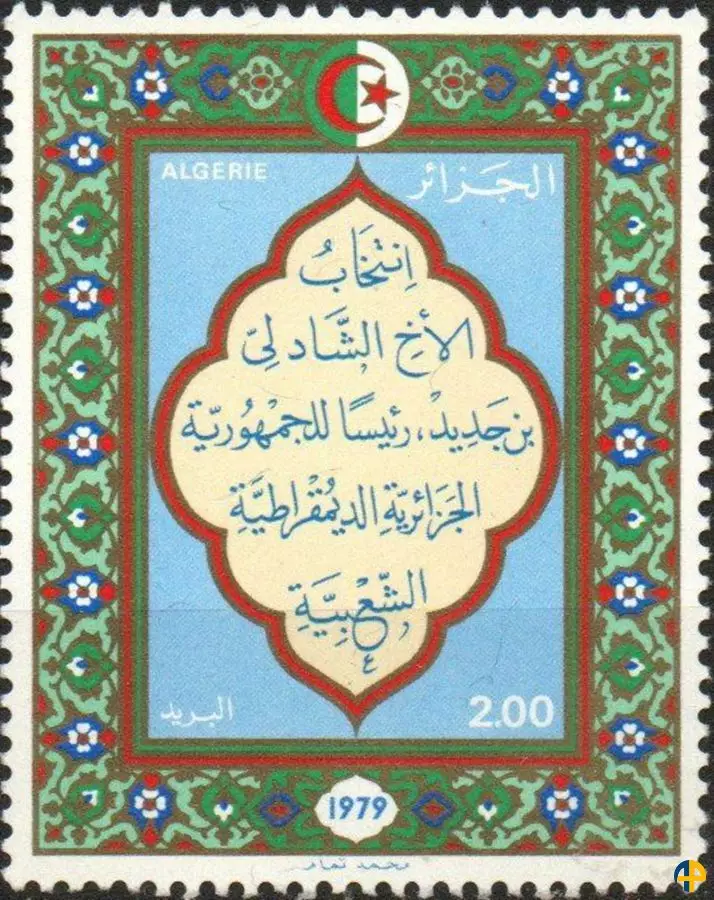 ALGERIE
الجَزائر
إنتخَابُ
الأخِ الشَّاذلِيّ
بن جَديد، رئيسًا للجمْهُوريّة
الجَزائريّةِ الديمُقراطيَّةِ
الشّعْبِيَّةِ
البريد
2.00
1979
محمد تمام